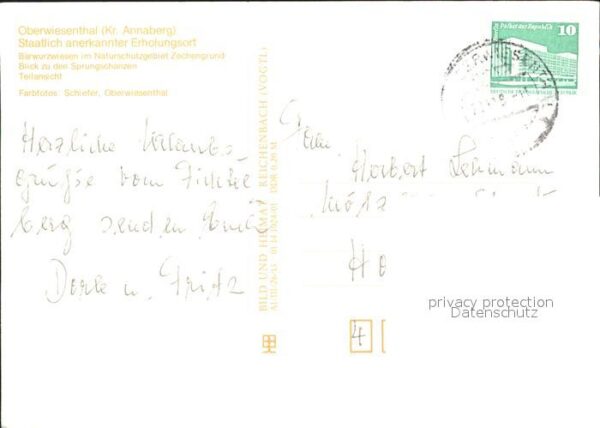 Oberwiesenthal (Kr. Annaberg)
Staatlich anerkannter Erholungsort
Bärwurzwiesen im Naturschutzgebiet Zechengrund
Blick zu den Sprungschanzen
Teilansicht
Farbfotos: Schiefer, Oberwiesenthal
Herzliche Urlaubs-
grüße vom Fichtel
berg senden Euch
Dorle u. Fritz
BILD UND HEIMAT REICHENBACH (VOGTL)
DDR 0,20 M
Palast der Republik 10
Fam.
Herbert Lehmann
Ho
4
privacy protection
Datenschutz